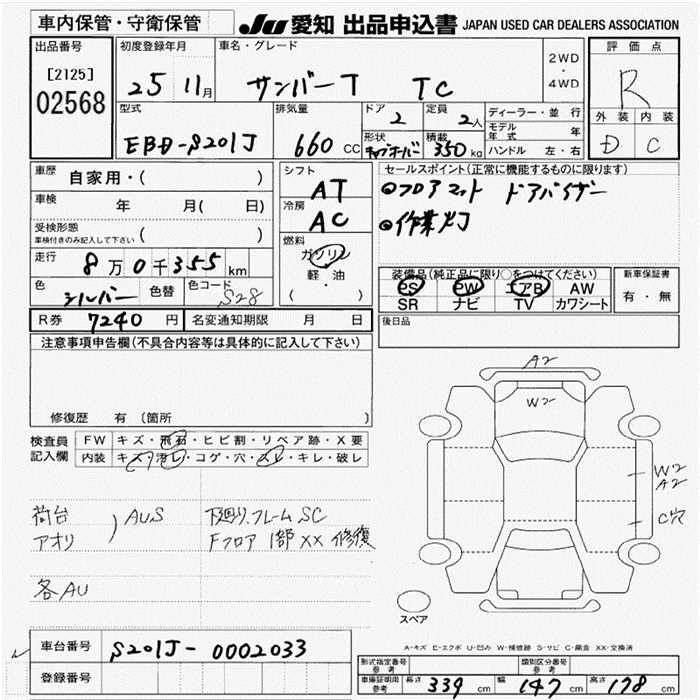 車内保管・守衛保管 JU 愛知 出品申込書 JAPAN USED CAR DEALERS ASSOCIATION
出品番号 初度登録年月 車名・グレード 評価点
[2125] 25 11月 サンバーT TC 2WD・4WD R
02568
型式 排気量 ドア 定員 ディーラー・並行 外装 内装
EBD-S201J 660cc 2 2人 モデル年式 年 D C
形状 積載 ハンドル 左・右
キャブオーバー 350kg
車歴 自家用・( ) シフト AT セールスポイント(正常に機能するものに限ります)
車検 年 月( 日) 冷房 AC ●フロアマット ドアバイザー
受検形態 ●作業灯
車検付きのみ記入して下さい 燃料
走行 8万0千355km ガソリン
軽・油
( )
色 シルバー 色替 色コード S28
装備品(純正品に限り○をつけてください) 新車保証書
PS PW エアB AW 有・無
SR ナビ TV カワシート
R券 7240円 名変通知期限 月 日 後日品
注意事項申告欄(不具合内容等は具体的に記入して下さい)
修復歴 有 (箇所 )
検査員 FW キズ・飛石・ヒビ割・リペア跡・X要
記入欄 内装 キズ・汚レ・コゲ・穴・スレ・キレ・破レ
A2
W2
W2
A2
C穴
荷台 AUS 下廻り.フレームSC
アオリ Fフロア 1部XX 修復
各AU
スペア
A-キズ E-エクボ U-凹み W-補修跡 S-サビ C-腐食 XX-交換済
車台番号 S201J-0002033
登録番号
形式指定番号 参考 類別区分番号 参考
車庫証明用 参考 長さ 339cm 幅 147cm 高さ 178cm